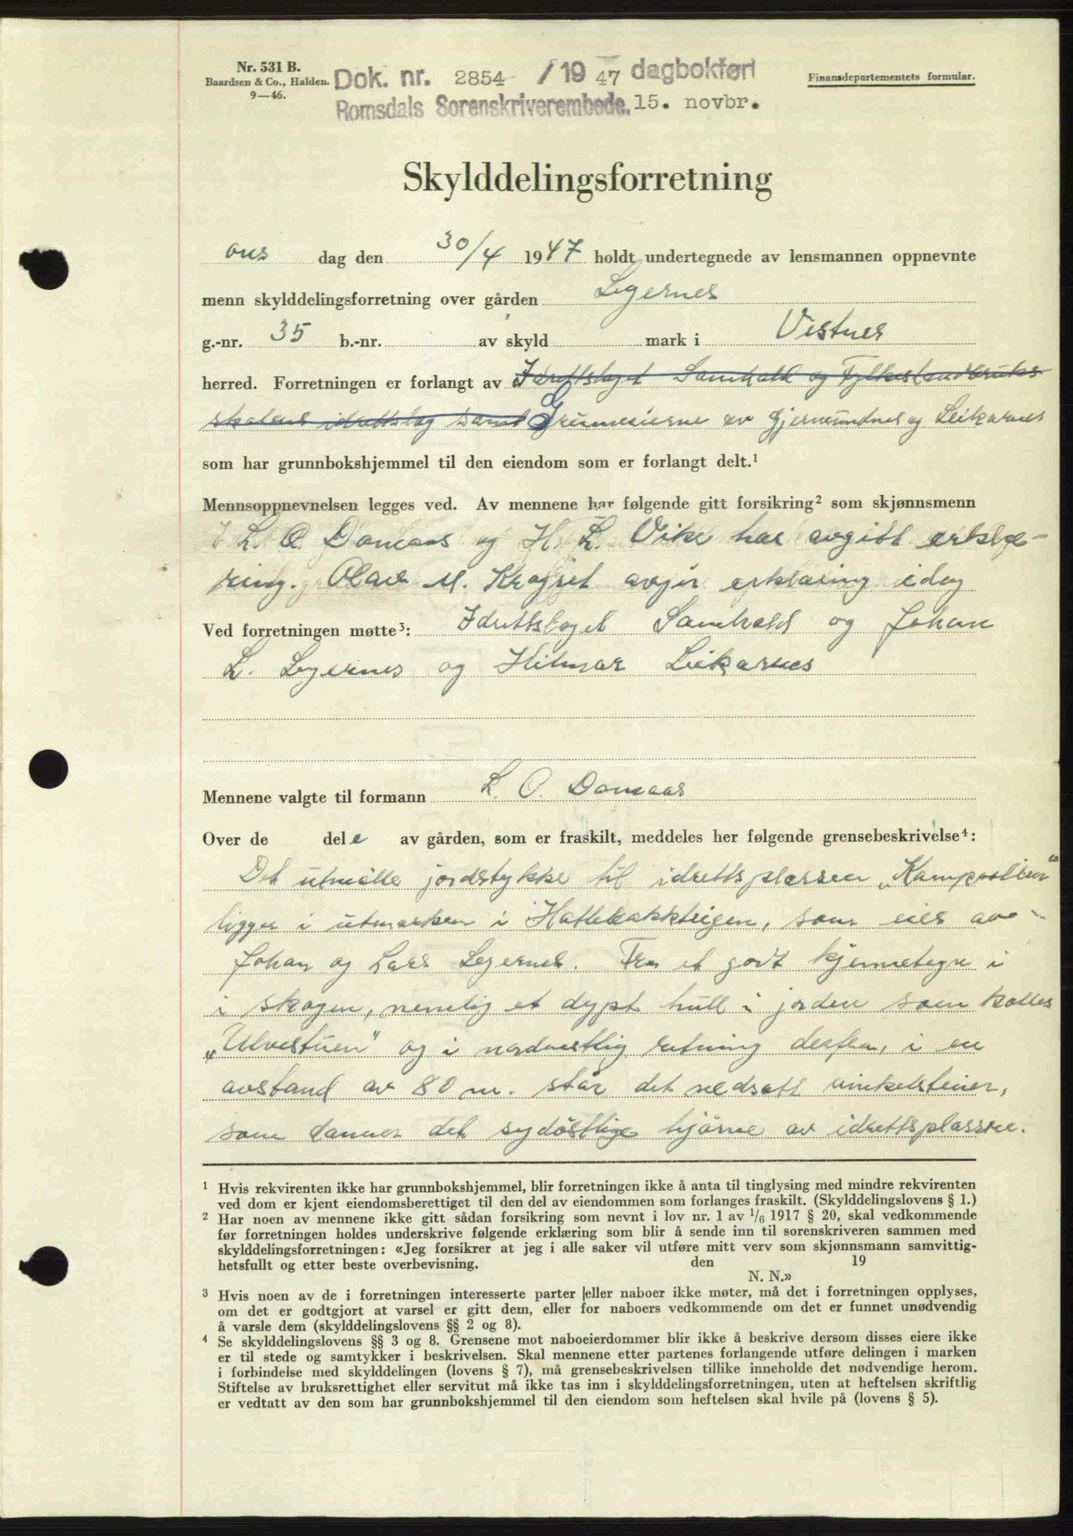 Nr. 531 B.
Baardsen & Co., Halden.
9—46.
Dok. nr. 2854 / 19 47 dagbokført
Romsdals Sorenskriverembede. 15. novbr.
Finansdepartementets formular.
Skylddelingsforretning
ons dag den 30/4 1947 holdt undertegnede av lensmannen oppnevnte
menn skylddelingsforretning over gården Legernes
g.-nr. 35 b.-nr. av skyld mark i Vestnes
herred. Forretningen er forlangt av Idrettslaget Samhald og Fylkeslandbruks
skolens idrettslag samt Grunneierne av Gjermundnes og Leikarnes
som har grunnbokshjemmel til den eiendom som er forlangt delt.¹
Mennsoppnevnelsen legges ved. Av mennene har følgende gitt forsikring² som skjønnsmenn
L. O. Damaas og H. L. Vike har avgitt erklæ-
ring. Olav M. Kragset avgir erklæring idag
Ved forretningen møtte³: Idrettslaget Samhald og Johan
L. Legernes og Hilmar Leikarnes
Mennene valgte til formann L. O. Damaas
Over de dele av gården, som er fraskilt, meddeles her følgende grensebeskrivelse⁴:
Det utmålte jordstykke til idrettsplassen
ligger i utmarken i som eies av
Johan og Lars Legernes. Fra et godt kjennetegn i
i skogen, nemlig et dypt hull i jorden som kalles
„Ulvestuen" og i nordvestlig retning derfra, i en
avstand av 80 m. står det nedsatt vinkelsteiner,
som danner det sydöstlige hjörne av idrettsplassen.
¹ Hvis rekvirenten ikke har grunnbokshjemmel, blir forretningen ikke å anta til tinglysing med mindre rekvirenten
ved dom er kjent eiendomsberettiget til den del av eiendommen som forlanges fraskilt. (Skylddelingslovens § 1.)
² Har noen av mennene ikke gitt sådan forsikring som nevnt i lov nr. 1 av 1/6 1917 § 20, skal vedkommende
før forretningen holdes underskrive følgende erklæring som blir å sende inn til sorenskriveren sammen med
skylddelingsforretningen: «Jeg forsikrer at jeg i alle saker vil utføre mitt verv som skjønnsmann samvittig-
hetsfullt og etter beste overbevisning. den 19
N. N.»
³ Hvis noen av de i forretningen interesserte parter eller naboer ikke møter, må det i forretningen opplyses,
om det er godtgjort at varsel er gitt dem, eller for naboers vedkommende om det er funnet unødvendig
å varsle dem (skylddelingslovens §§ 2 og 8).
⁴ Se skylddelingslovens §§ 3 og 8. Grensene mot naboeierdommer blir ikke å beskrive dersom disses eiere ikke
er til stede og samtykker i beskrivelsen. Skal mennene etter partenes forlangende utføre delingen i marken
i forbindelse med skylddelingen (lovens § 7), må grensebeskrivelsen tillike inneholde det nødvendige herom.
Stiftelse av bruksrettighet eller servitut må ikke tas inn i skylddelingsforretningen, uten at heftelsen skriftlig
er vedtatt av den som har grunnbokshjemmel til den eiendom som heftelsen skal hvile på (lovens § 5).